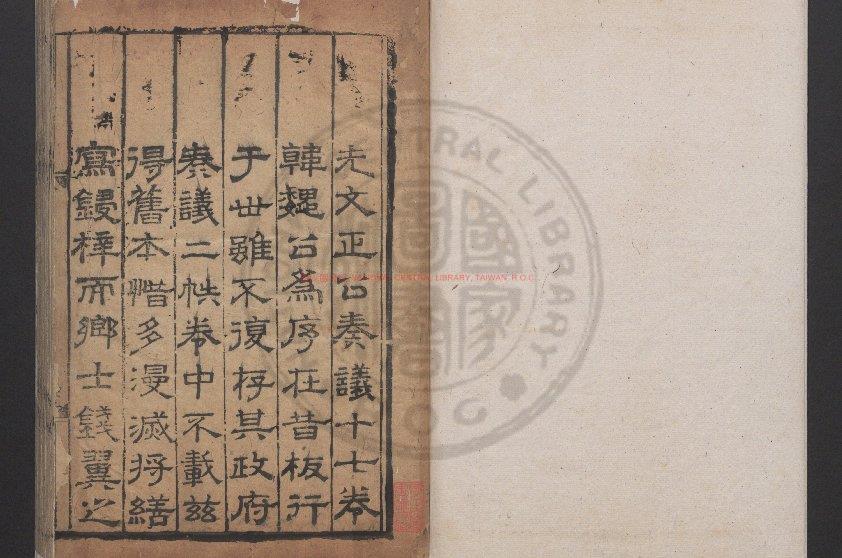 先文正公奏議十七卷
韓魏公爲序在昔板行
于世雖不復存其政府
奏議二帙卷中不載兹
得舊本惜多漫滅將繕
寫鋟梓而鄉士錢翼之
CENTRAL LIBRARY, TAIWAN, R.O.C
國家圖書
CENTRAL LIBRARY
R.O.C